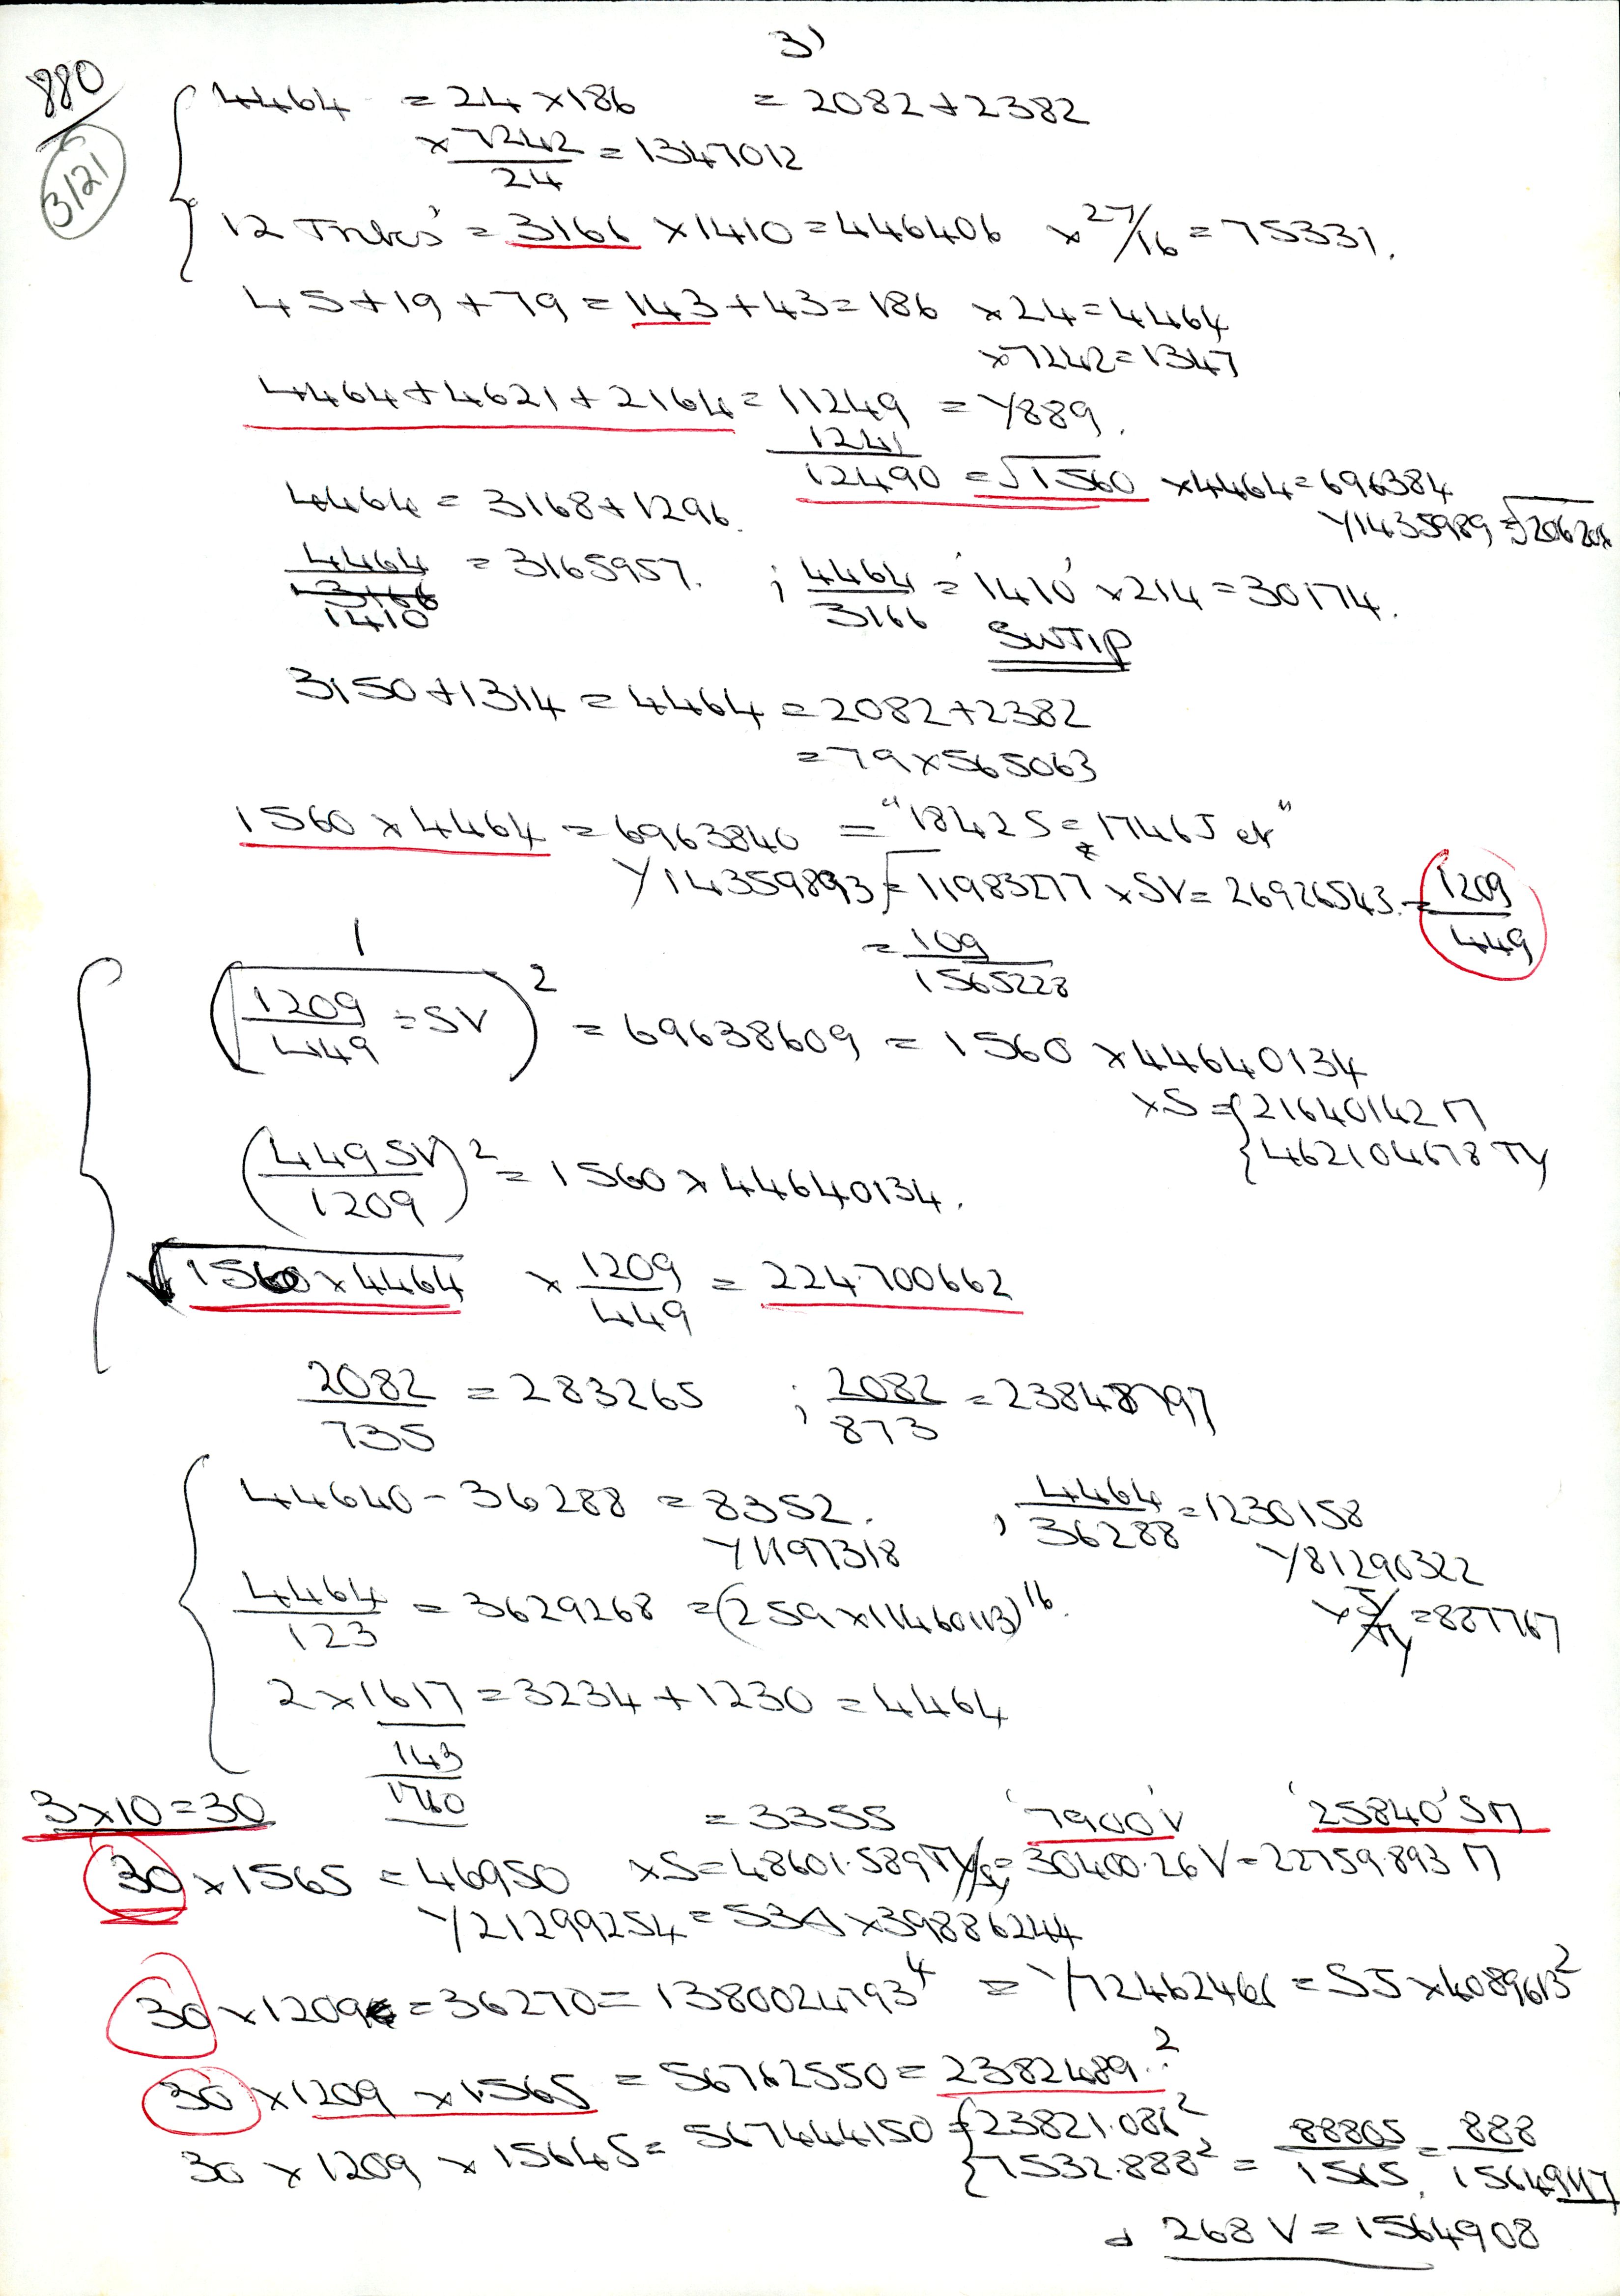 3)
880
3121
4464 = 24 × 186 = 2082 + 2382
× 7242/24 = 1347012
12 Tribes' = 3166 × 1410 = 446406 × 27/16 = 75331.
45 + 19 + 79 = 143 + 43 = 186 × 24 = 4464
× 7242 = 1347
4464 + 4621 + 2164 = 11249 = Y889.
1241
12490 = √1560 × 4464 = 696384
4464 = 3168 + 1296.
Y1435989 = √20620
4464/1410 = 3165957. ; 4464/3166 = '1410' × 214 = 30174.
SWTIP
3150 + 1314 = 4464 = 2082 + 2382
= 79 × 565063
1560 × 4464 = 6963840 = "1842S = 1746J et"
Y14359893 = √11983277 × SV = 26926543. = 1209/449
= 109/1565228
1
(1209/449 ÷ SV)² = 69638609 = 1560 × 44640134
× S = {21640142 Π
{462104678 TY
(449SV/1209)² = 1560 × 44640134.
√1560 × 4464 × 1209/449 = 224.700662
2082/735 = 283265 ; 2082/873 = 23848797
44640 - 36288 = 8352. ; 4464/36288 = 1230158
Y1197318 Y81290322
4464/123 = 3629268 = (259 × 11460113)¹⁶. × J/TY = 887767
2 × 1617 = 3234 + 1230 = 4464
143
1760
3 × 10 = 30 = 3355 '7900'V '25840'SΠ
30 × 1565 = 46950 × S = 48601.589 TY/ = 30400.26 V = 22759.893 Π
Y21299254 = 53 × 39886244
30 × 1209 = 36270 = 1380024793⁴ = Y72462466 = SJ × 4089613²
30 × 1209 × 1.565 = 56762550 = 2382489..²
30 × 1209 × 15645 = 567444150 = {23821.086²
{7532.888² = 88805/1565. = 888/1564947
268 V = 1564908